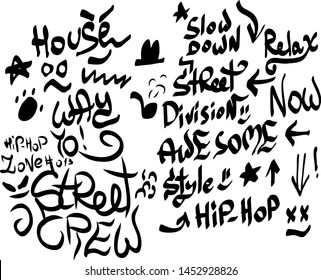 HOUSE
WAY
YO!
HiP-HOP
ZONE #013
STREET
CREW
SLOW
DOWN
Relax
STREET
Division
NOW
AWESOME
Style
HiP-HOP
XX
shutterstock.com · 1452928826